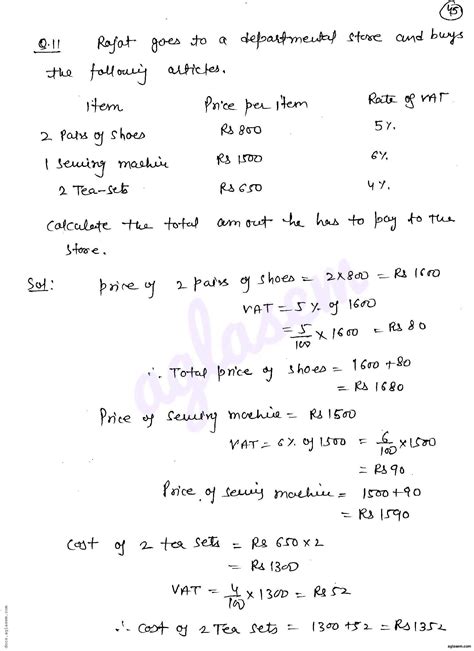 45
Q.11 Rajat goes to a departmental store and buys
the following articles.
Item Price per item Rate of VAT
2 Pairs of shoes Rs 800 5%
1 Sewing machine Rs 1500 6%
2 Tea-sets Rs 650 4%
Calculate the total amout he has to pay to the
store.
Sol: price of 2 pairs of shoes = 2×800 = Rs 1600
VAT = 5% of 1600
= 5/100 × 1600 = Rs 80
∴ Total price of shoes = 1600 + 80
= Rs 1680
Price of sewing machine = Rs 1500
VAT = 6% of 1500 = 6/100 × 1500
= Rs 90
Price of sewing machine = 1500 + 90
= Rs 1590
Cost of 2 tea sets = Rs 650 × 2
= Rs 1300
VAT = 4/100 × 1300 = Rs 52
∴ Cost of 2 Tea sets = 1300 + 52 = Rs 1352
aglasem
docs.aglasem.com
aglasem.com